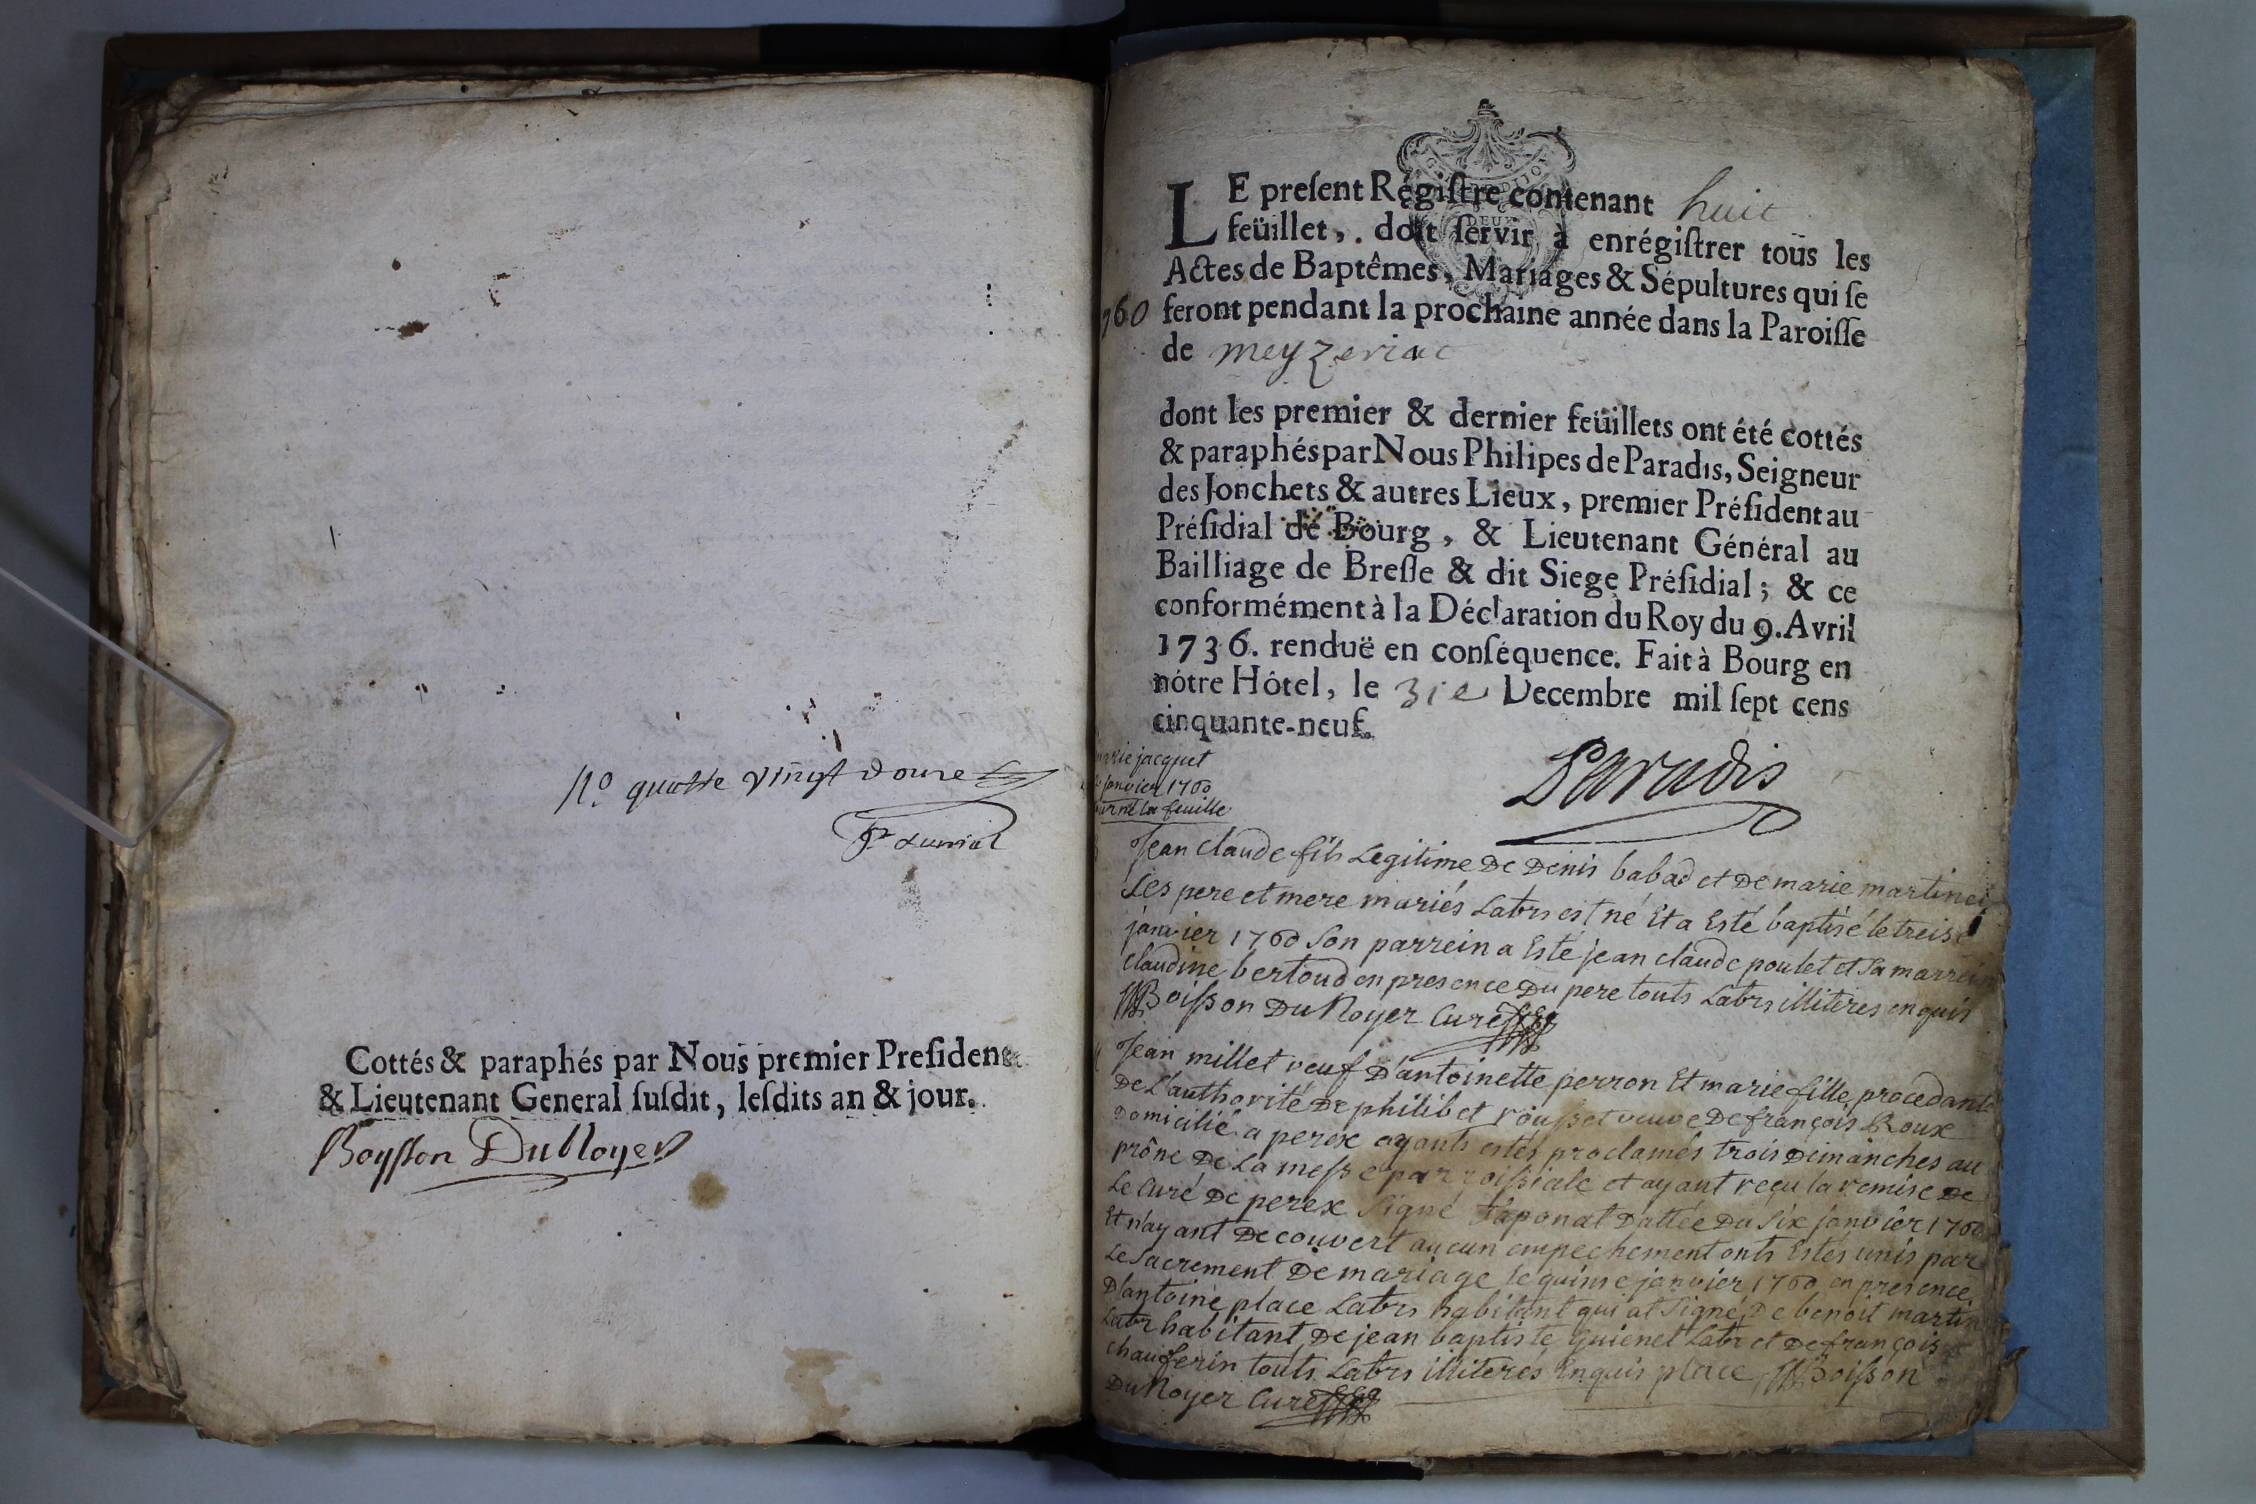 No quatre vingt douze
Cottés & paraphés par Nous premier President
& Lieutenant General susdit, lesdits an & jour.
Boysson DuNoyer
LE present Régistre contenant huit
feüillet, . doit servir à enrégistrer tous les
Actes de Baptêmes, Mariages & Sépultures qui se
feront pendant la prochaine année dans la Paroisse
760
de meyzeriac
dont les premier & dernier feüillets ont été cottés
& paraphés par Nous Philipes de Paradis, Seigneur
des Jonchets & autres Lieux, premier Président au
Présidial de Bourg, & Lieutenant Général au
Bailliage de Bresse & dit Siege Présidial ; & ce
conformément à la Déclaration du Roy du 9. Avril
1736. renduë en conséquence. Fait à Bourg en
nótre Hôtel, le 31e Decembre mil sept cens
cinquante-neuf.
Paradis
jacquet
janvier 1760
la feuille
Jean claude fils Legitime De Denis babad et De marie martinet
Les pere et mere mariés Labrs est né Et a Esté baptisé le treise
janvier 1760 son parrein a Esté jean claude poulet et sa marreine
claudine bertoud en presence Du pere touts Labrs illiteres enquis
Boisson DuNoyer Curé
Jean millet veuf D'antoinette perron Et marie fille procedante
De L'authorité De philibet rousset veuve De françois Roux
Domicilié a perex ayants estés proclamés trois Dimanches au
prône De La messe parroissiale et ayant reçu la remise De
Le Curé De perex Signé Laponat Dattée Du Six janvier 1760
Et n'ayant Decouvert aucun empechement onts Estés unis par
Le Sacrement De mariage le quinse janvier 1760 en presence
D'antoine place Labrs habitant qui at Signé De benoit martin
Labr habitant, De jean baptiste Guienet Labr et De françois
chauferin touts Labrs illiteres Enquis place Boisson
DuNoyer Curé